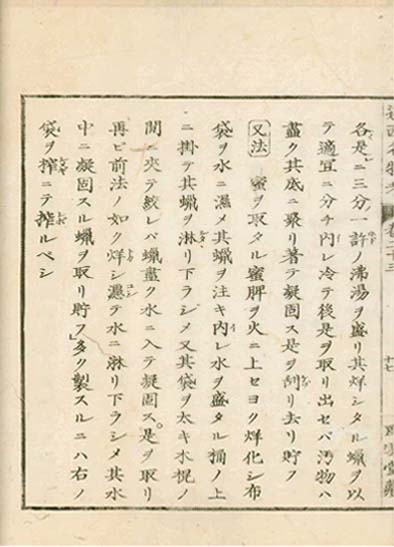 各是ニ三分一許ノ沸湯ヲ盛リ其烊シタル蝋ヲ以
テ適宜ニ分チ内レ冷テ後是ヲ取リ出セバ汚物ハ
盡ク其底ニ聚リ著テ凝固ス是ヲ刮リ去リ貯フ
又法 蜜ヲ取タル蜜脾ヲ火ニ上セヨク烊化シ布
袋ヲ水ニ濕メ其蝋ヲ注キ内レ水ヲ盛タル桶ノ上
ニ掛テ其蝋ヲ淋リ下ラシメ又其袋ヲ太キ木棍ノ
間ニ夾テ絞レバ蝋盡ク水ニ入テ凝固ス。是ヲ取リ
再ビ前法ノ如ク烊シ濾テ水ニ淋リ下ラシメ其水
中ニ凝固スル蝋ヲ取リ貯フ」多ク製スルニハ右ノ
袋ヲ搾ニテ搾ルベシ